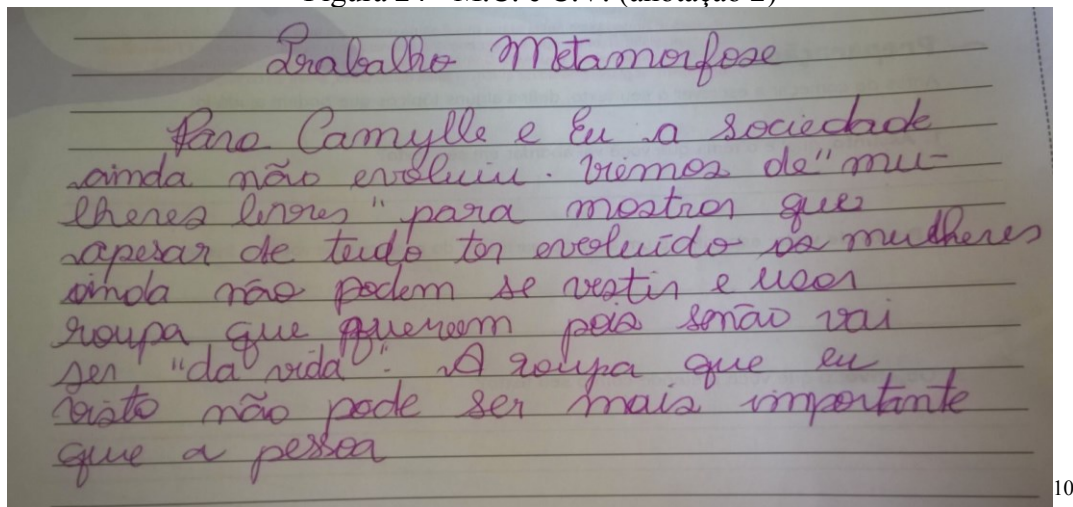 Trabalho Metamorfose
Para Camylle e Eu a sociedade
ainda não evoluiu. Viemos de "mu-
lheres livres" para mostrar que
apesar de tudo ter evoluído as mulheres
ainda não podem se vestir e usar
roupa que querem pois senão vai
ser "da vida". A roupa que eu
visto não pode ser mais importante
que a pessoa
10